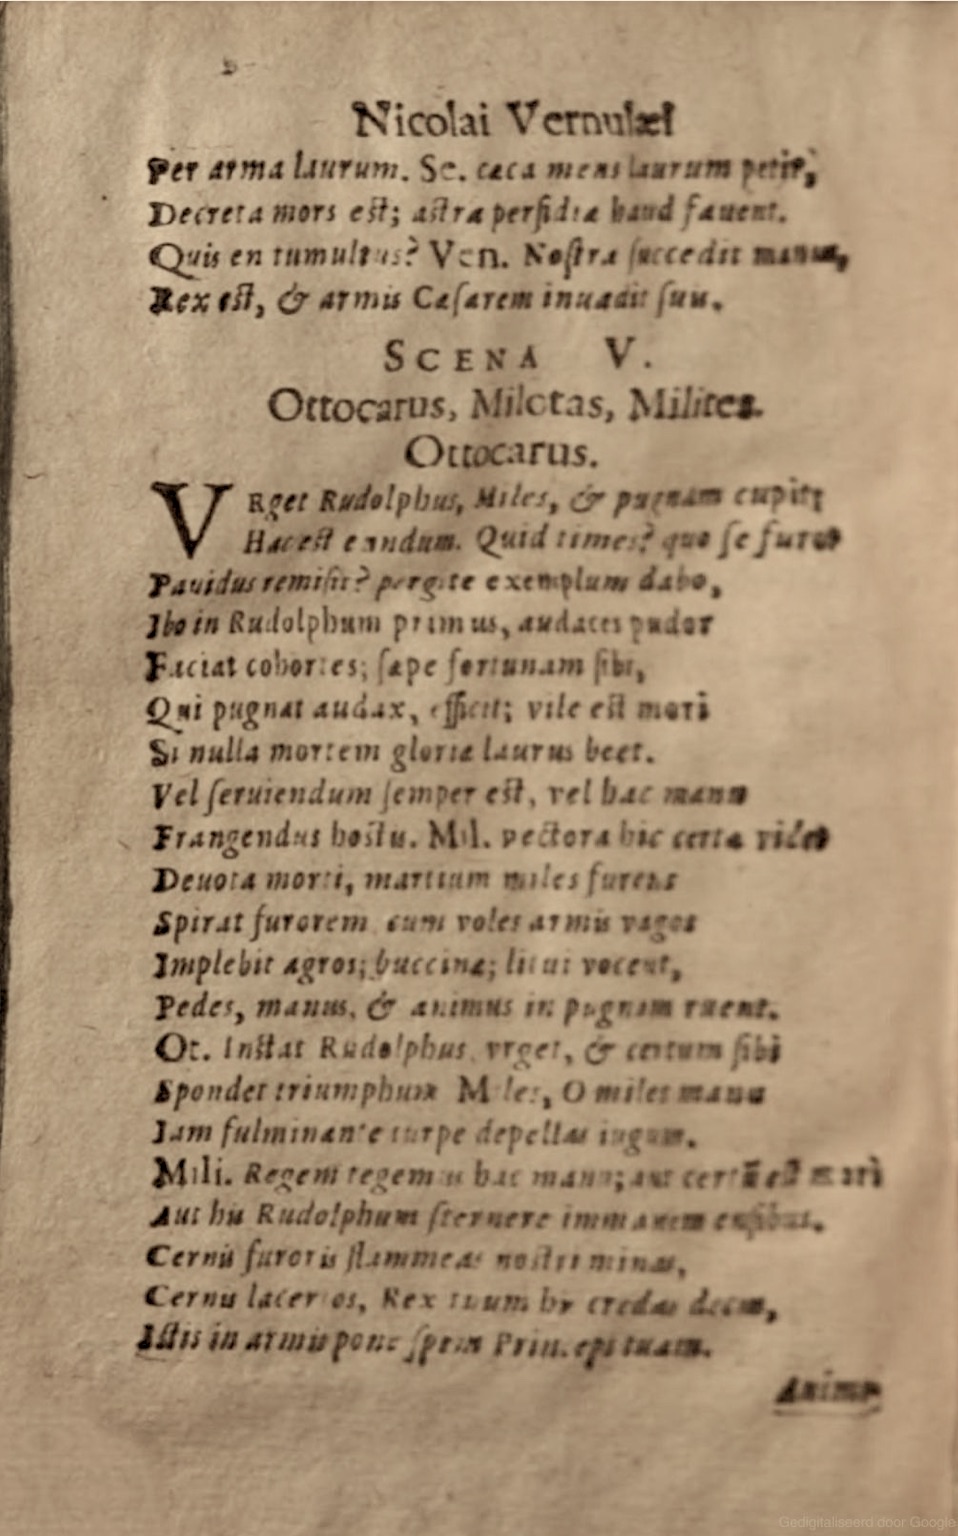 Nicolai Vernulæi
Per arma laurum. Se. cæca mens laurum petit,
Decreta mors est; astra perfidia haud fauent.
Quis en tumultus? Ven. Nostra succedit manus,
Rex est, & armis Cæsarem inuadit suis.
SCENA V.
Ottocarus, Milotas, Milites.
Ottocarus.
VRget Rudolphus, Miles, & pugnam cupit;
Hac est eundum. Quid times? quo se furor
Pauidus remisit? pergite exemplum dabo,
Ibo in Rudolphum primus, audaces pudor
Faciat cohortes; sæpe fortunam sibi,
Qui pugnat audax, efficit; vile est mori
Si nulla mortem gloria laurus beet.
Vel seruiendum semper est, vel hac manu
Frangendus hostis. Mil. pectora hic certa vides
Deuota morti, martium miles furens
Spirat furorem cum voles armis vagos
Implebit agros; buccina; litui vocent,
Pedes, manus, & animus in pugnam ruent.
Ot. Instat Rudolphus, vrget, & certum sibi
Spondet triumphum Miles, O miles manu
Iam fulminante turpe depellas iugum.
Mili. Regem tegemus hac manu; aut certũ est mori
Aut his Rudolphum sternere immanem ensibus.
Cernis furoris flammeas nostri minas,
Cernis lacertos, Rex tuum his credas decus,
Istis in armis pone spem Principi tuam.
Anime
Gedigitaliseerd door Google